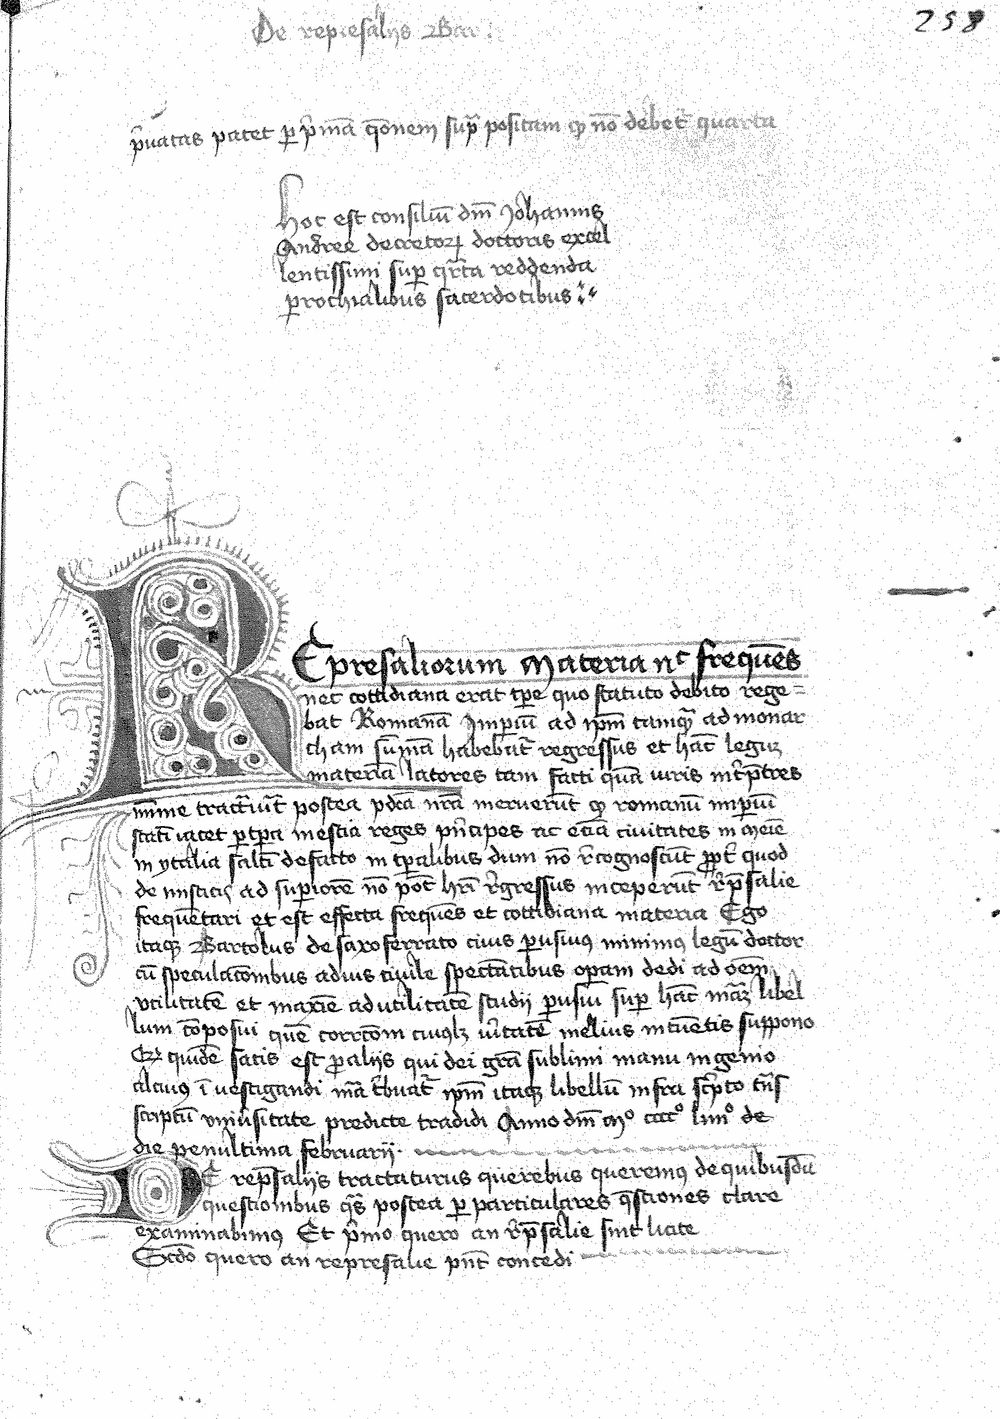 De represalijs Bar
258
p̄uatas patet ꝑ p̄mā q̄onem sup̄ positam ꝙ nō debet̄ quarta
Hoc est consiliū dn̄i Johannis
Andree decretoꝝ doctoris excel
lentissimi suꝑ q̄rta reddenda
ꝑrochialibus sacerdotibus
REpresaliorum Materia nec frequēs
nec cottidiana erat tꝑe quo statuto debito rege=
bat Romanā Imꝑiū ad ip̄m tamqꝫ ad monar
cham sūmā habebat̄ regressus et hāc leguꝫ
materiā latores tam facti quā iuris int̄p̄tres
mīme tractauerūt postea pc̄cā nr̄a meruerūt ꝙ romanū imꝑiū
statī iacet ꝑ tꝑa in estia reges pn̄cipes ac etiā ciuitates in
in ytalia saltī de facto in tꝑalibus dum nō r̄cognoscūt ꝓpt̄ quod
de iusticijs ad superiorē nō pōt hr̄i r̄gressus inceperūt r̄p̄salie
frequētari et est effecta frequēs et cottidiana materia Ego
itaqꝫ Bartolus de saxoferrato ciuis ꝑusinꝰ minimꝰ legū doctor
cū speculatōnibus a diuis ciuile spectātibus operam dedi ad oēm
vtilitatē et maxīe ad vtilitatē studii ꝑusiū suꝑ hāc māꝫ libel
lum cōposui quē corrc̄om cuiuslꝫ v̄itatē melius intuētis suppono
quidē satis est ꝓ alijs qui dei grā sublimi manu ingenio
alicuiꝰ ī vestigandi mā t̄buat̄ ip̄m itaqꝫ libellū infra sc̄pto
scriptū vniuersitate predicte tradidi Anno dn̄i mº cccº liiiiº de
die penultima februarij
DE rep̄salijs tractaturus querebus queremꝰ de quibusdā
questionibus q̄s postea ꝑ particulares q̄stiones clare
examinabimꝰ Et p̄mo quero an r̄p̄salie sint licite
Scd̄o quero an represalie pn̄t concedi